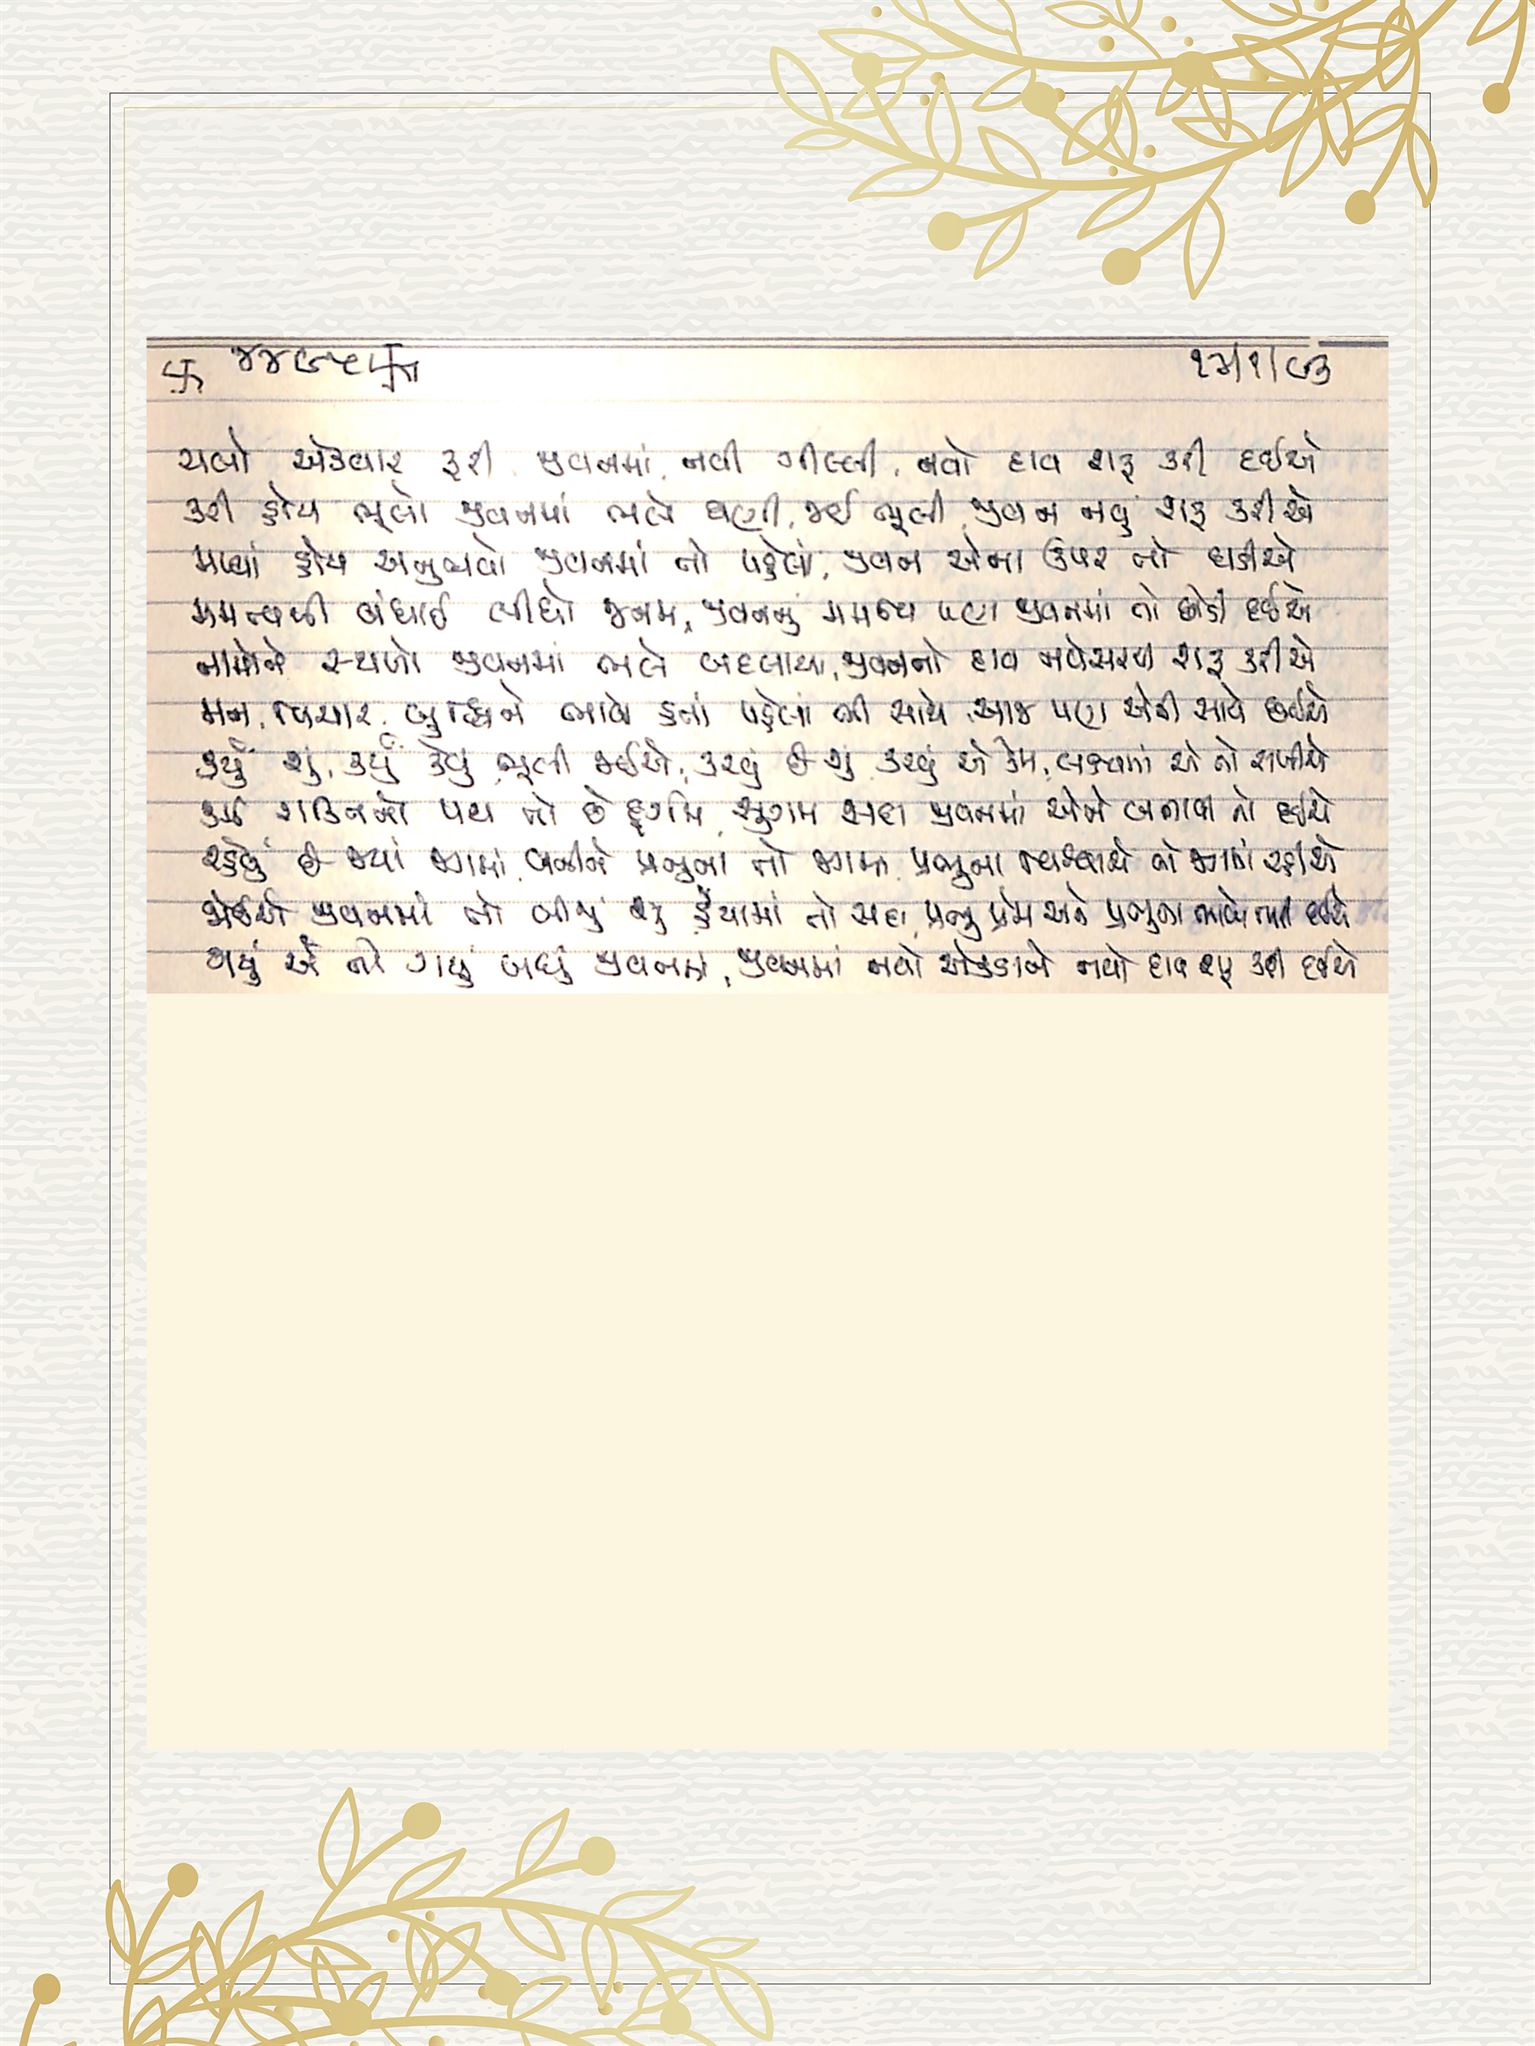 ૪૪૯૫ ૧૩/૧/૯૩
ચલો એકવાર ફરી જીવનમાં, નવી ગીલ્લી, નવો દાવ શરૂ કરી દઈએ
કરી હોય ભૂલો જીવનમાં ભલે ઘણી, જઈ ભૂલી, જીવન નવું શરૂ કરીએ
મળ્યાં હોય અનુભવો જીવનમાં તો પહેલાં, જીવન એના ઉપર તો ઘડીએ
મમત્વથી બંધાઈ લીધો જનમ, જીવનનું મમત્વ પણ જીવનમાં તો છોડી દઈએ
નામોને સ્થળો જીવનમાં ભલે બદલાયા, જીવનનો દાવ નવેસરથી શરૂ કરીએ
મન, વિચાર, બુદ્ધિને ભાવો હતાં પહેલાં ભી સાથે, આજ પણ એની સાથે છઈએ
કર્યું શું, કર્યું કેવું ભૂલી જઈએ, કરવું છે શું કરવું એ કેમ, લક્ષ્યમાં એ તો રાખીએ
કઈ શક્તિનો પથ તો છે દુર્ગમ, સુગમ સદા જીવનમાં એને બનાવી તો દઈએ
રહેવું છે જ્યાં જગમાં, બનીને પ્રભુના તો જગમાં, પ્રભુના વિશ્વાસે તો જગમાં રહીએ
જોઈએ જીવનમાં તો બીજું શું હૈયામાં તો સદા, પ્રભુ પ્રેમ અને પ્રભુના ભાવો ભરી દઈએ
ગયું એ તો ગયું બધું જીવનમાં, જીવનમાં નવો એકડાને નવો દાવ શરૂ કરી દઈએ